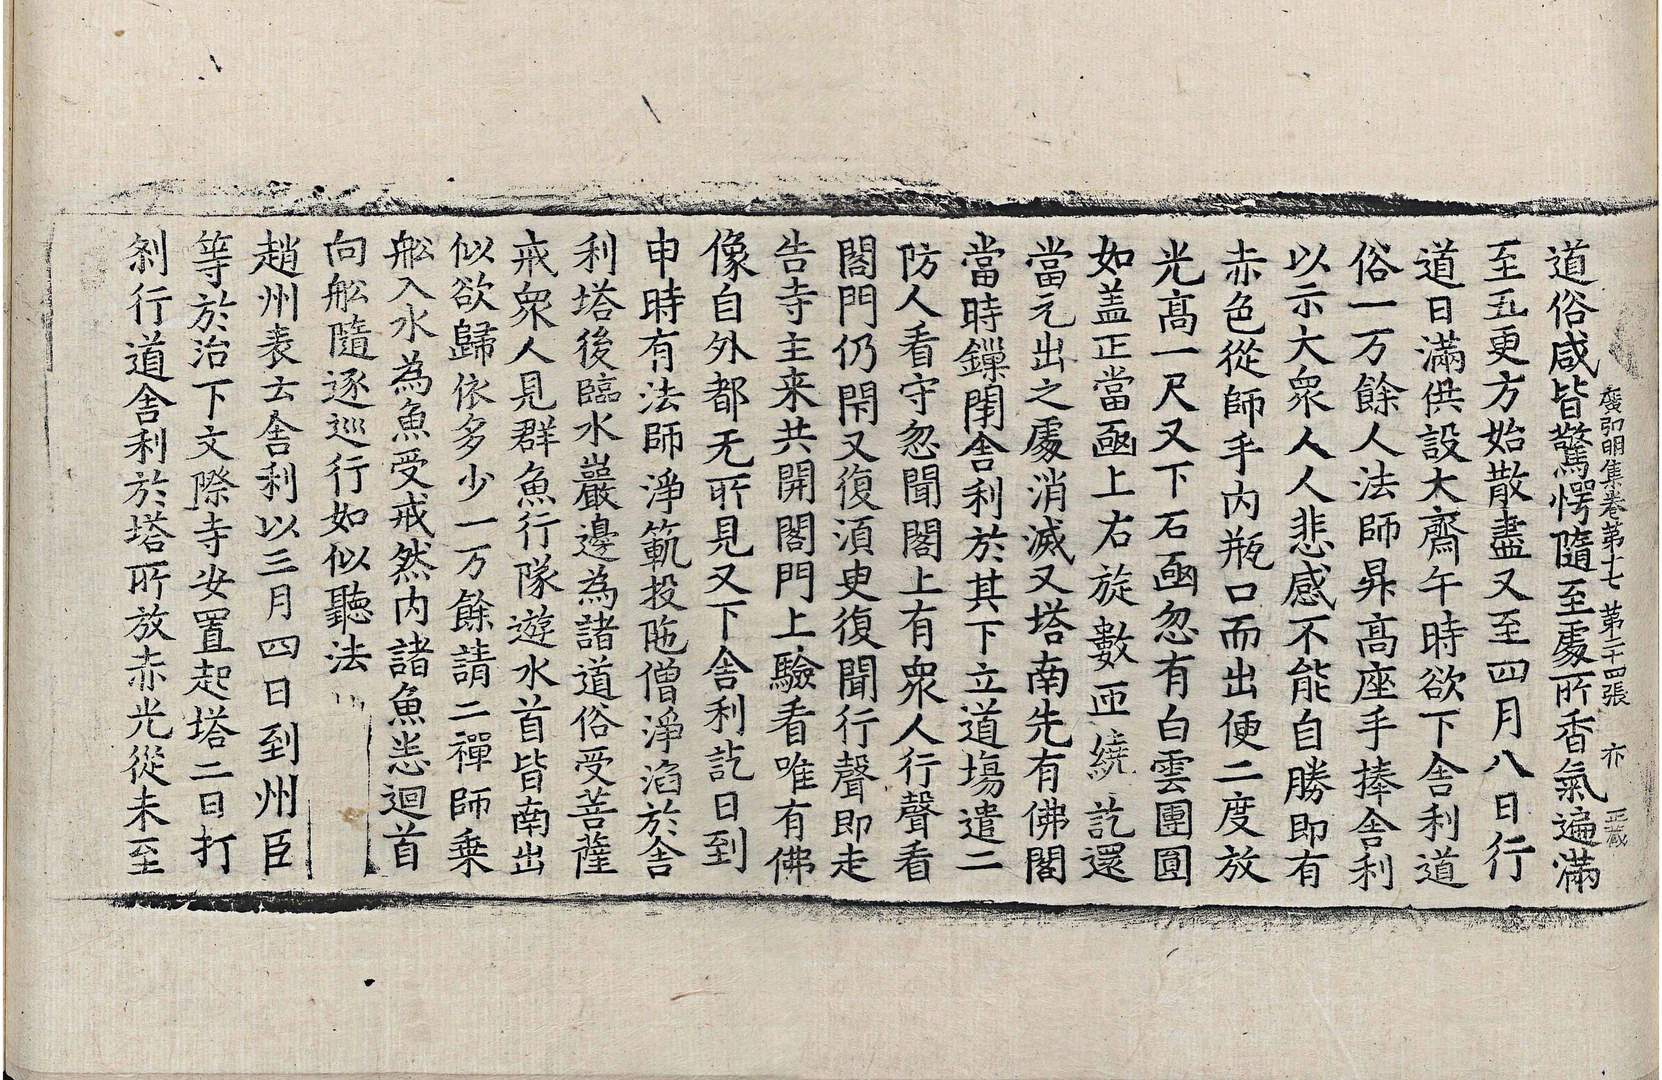 廣弘明集卷第十七 第二十四張 亦
道俗咸皆驚愕隨至處所香氣遍滿
至五更方始散盡又至四月八日行
道日滿供設大齋午時欲下舍利道
俗一万餘人法師昇高座手捧舍利
以示大衆人人悲感不能自勝即有
赤色從師手內瓶口而出便二度放
光高一尺又下石凾忽有白雲團圓
如盖正當凾上右旋數匝繞訖還
當元出之處消滅又塔南先有佛閣
當時鏁閉舍利於其下立道塲遣二
防人看守忽聞閣上有衆人行聲看
閣門仍閇又復須臾復聞行聲即走
告寺主来共開閣門上驗看唯有佛
像自外都无所見又下舍利訖日到
申時有法師淨範投陁僧淨滔於舍
利塔後臨水巖邊為諸道俗受菩薩
戒衆人見群魚行隊遊水首皆南出
似欲歸依多少一万餘請二禪師乗
舩入水為魚受戒然內諸魚悉迴首
向舩隨逐巡行如似聽法
趙州表云舍利以三月四日到州臣
等於治下文際寺安置起塔二日打
剎行道舍利於塔所放赤光從未至